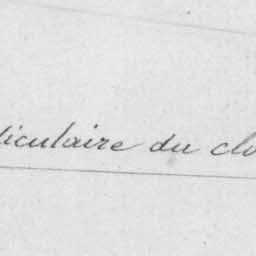 ticulaire du clo